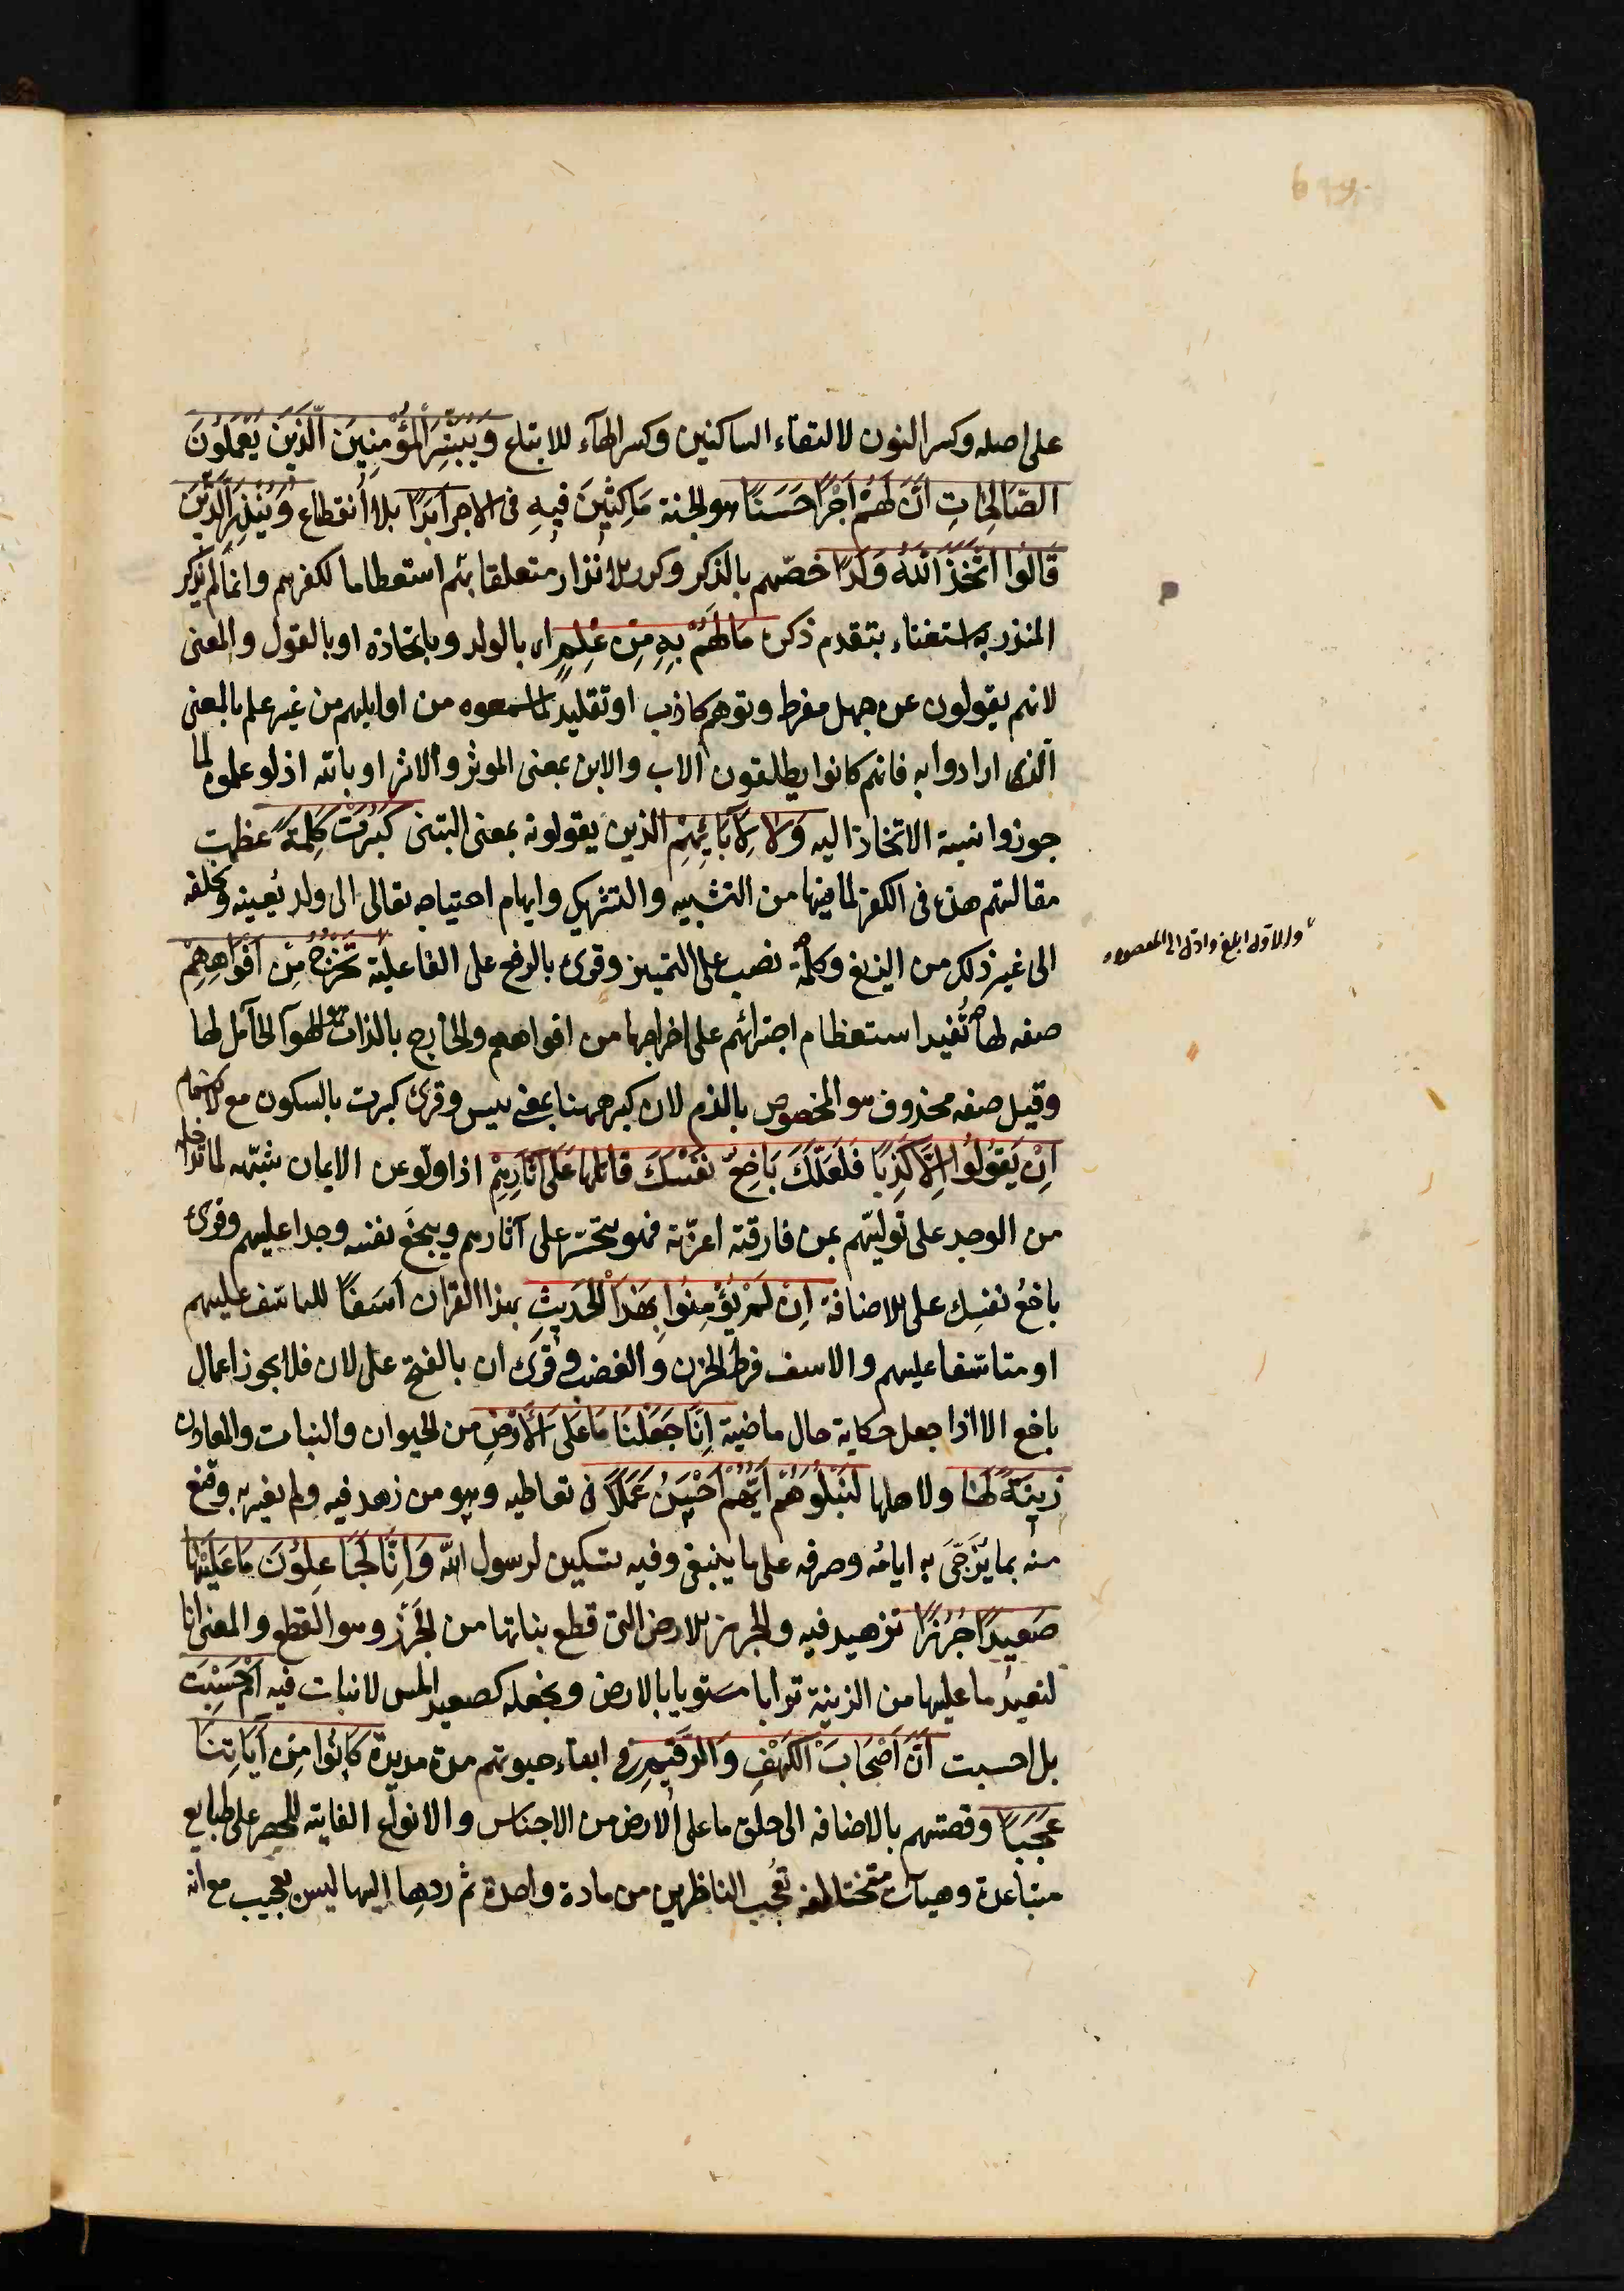 على اصله وكسر النون لالتقاء الساكنين وكسر الهاء للاتباع وَيُبَشِّرَ الْمُؤْمِنِينَ الَّذِينَ يَعْمَلُونَ
الصَّالِحَاتِ اَنَّ لَهُمْ اَجْرًا حَسَنًا هو الجنة مَاكِثِينَ فِيهِ فى الاجر اَبَدًا بلا انقطاع وَيُنْذِرَ الَّذِينَ
قَالُوا اتَّخَذَ اللَّهُ وَلَدًا خصّهم بالذكر وكرر الانذار متعلقا بهم استعظاما لكفرهم وانما لم يذكر
المنذر به استغناء بتقدم ذكره مَا لَهُمْ بِهِ مِنْ عِلْمٍ اى بالولد وباتخاذه او بالقول والمعنى
لانهم يقولون عن جهل مفرط وتوهم كاذب او تقليد لما سمعوه من اوايلهم من غير علم بالمعنى
الذى ارادوا به فانهم كانوا يطلقون الاب والابن بمعنى الموثر والاثر او بالله اذ لو علموه لما
جوزوا نسبة الاتخاذ اليه وَلَا لِاٰبَائِهِمْ الذين يقولونه بمعنى التبنى كَبُرَتْ كَلِمَةً عظمت
مقالتهم هذه فى الكفر لما فيها من التشبيه والتشريك وايهام احتياجه تعالى الى ولد يُعينه ويخلفه
الى غير ذلك من الزيغ وكلمةً نصب على التمييز وقرئ بالرفع على الفاعلية تَخْرُجُ مِنْ اَفْوَاهِهِمْ
والاول ابلغ وادل الى المقصود
صفه لها تُفيد استعظام اجترائهم على اخراجها من افواههم والخارج بالذات هو الهوآ الحامل لها
وقيل صفه محذوف هو المخصوص بالذم لان كبر ههنا بمعنى بيس وقرئ كبرت بالسكون مع الاشمام
اِنْ يَقُولُوا اِلَّا كَذِبًا فَلَعَلَّكَ بَاخِعٌ نَفْسَكَ قاتلها عَلَى اٰثَارِهِمْ اذا ولّو عن الايمان شبّهه لما تداخله
من الوجد على تولّيهم بمن فارقته اعزّته فهو يتحسّر على آثارهم ويبخع نفسه وجدا عليهم وقرئ
باخعُ نفسِك على الاضافة اِنْ لَمْ يُؤْمِنُوا بِهَذَا الْحَدِيثِ بهذا القران اَسَفًا للتاسّف عليهم
او متاسّفا عليهم والاسف فرط الحزن والغضب وقرئ ان بالفتح على لان فلا يجوز اعمال
باخع الا اذا جعل حكاية حال ماضية اِنَّا جَعَلْنَا مَا عَلَى الْاَرْضِ من الحيوان والنبات والمعادن
زِينَةً لَهَا ولاهلها لِنَبْلُوَهُمْ اَيُّهُمْ اَحْسَنُ عَمَلًا فى تعاطيه وهو من زهد فيه ولم يغتر به وقنع
منه بما يُزَجّى به ايامه وصرفه على ما ينبغى وفيه تسكين لرسول الله وَاِنَّا لَجَاعِلُونَ مَا عَلَيْهَا
صَعِيدًا جُرُزًا تزهيد فيه والجرز الارض التى قطع نباتها من الجَرَز وهو القطع والمعنى انا
لنعيدُ ما عليها من الزينة ترابا مستويا بالارض ونجعله كصعيد املس لا نبات فيه اَمْ حَسِبْتَ
بل احسبت اَنَّ اَصْحَابَ الْكَهْفِ وَالرَّقِيمِ فى ابقاء حيوتهم مدة مديدة كَانُوا مِنْ اٰيَاتِنَا
عَجَبًا وقصتهم بالاضافه الى خلق ما على الارض من الاجناس والانواع الفايتة للحصر على طبايع
متباعدة وهيآت متخالفه تعجب الناظرين من مادة واحدة ثم ردها اليها ليس بعجيب مع انه